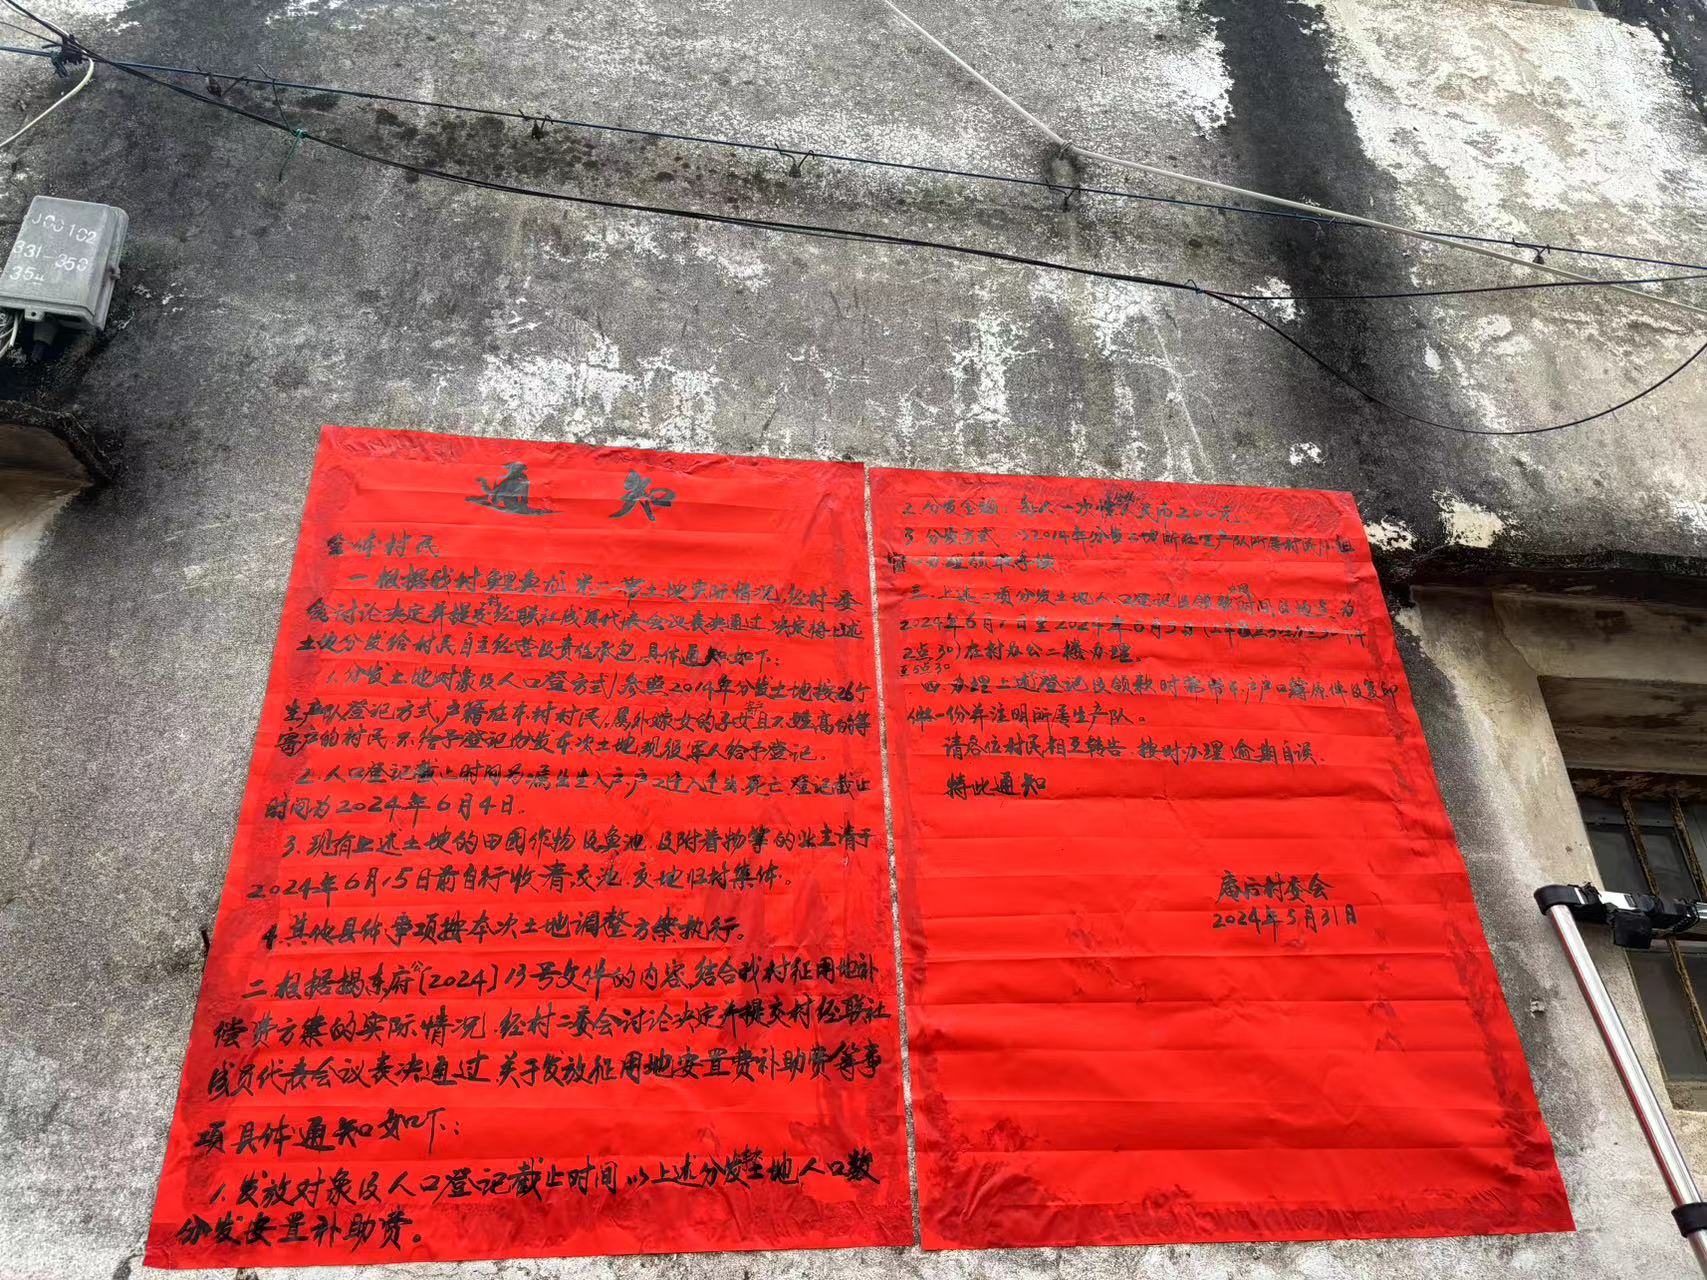 J00102
331-350
35
通知
全体村民
一.根据我村鲤鱼 第二带土地实际情况,经村委
会讨论决定并提交村经联社成员代表会议表决通过,决定将上述
土地分发给村民自主经营及责任承包,具体通知如下:
1.分发土地对象及人口登方式,参照2014年分发土地按26个
生产队登记方式,户籍在本村村民,属外嫁女的子女 且不 等
寄户的村民,不给予登记分发本次土地,现役军人给予登记。
2.人口登记截止时间为 出生入户,户口迁入迁出,死亡,登记截止
时间为2024年6月4日.
3.现有上述土地的田园作物及鱼池,及附着物等的业主请于
2024年6月15日前自行收清,交池.交地归村集体。
4.其他具体事项按本次土地调整方案执行。
二.根据揭东府公[2024]13号文件的内容,结合我村征用地补
偿费方案的实际情况,经村二委会讨论决定并提交村经联社
成员代表会议表决通过,关于发放征用地安置费补助费等事
项具体通知如下:
1.发放对象及人口登记截止时间,以上述分发 土地,人口数
分发安置补助费。
2.分发金额:每人一次性 人民币200元.
3.分发方式:以2014年分发土地所在生产队所属村民小组
窗口办理领取手续
三.上述二项分发土地人口登记及领款办理时间及地点:为
2024年6月1日至2024年6月5日(上午
2点30 至5点30)在村办公二楼办理。
四.办理上述登记及领款时需带本户户口簿原件及复印
件一份并注明所属生产队。
请各位村民相互转告,按时办理,逾期自误.
特此通知
庵后村委会
2024年5月31日